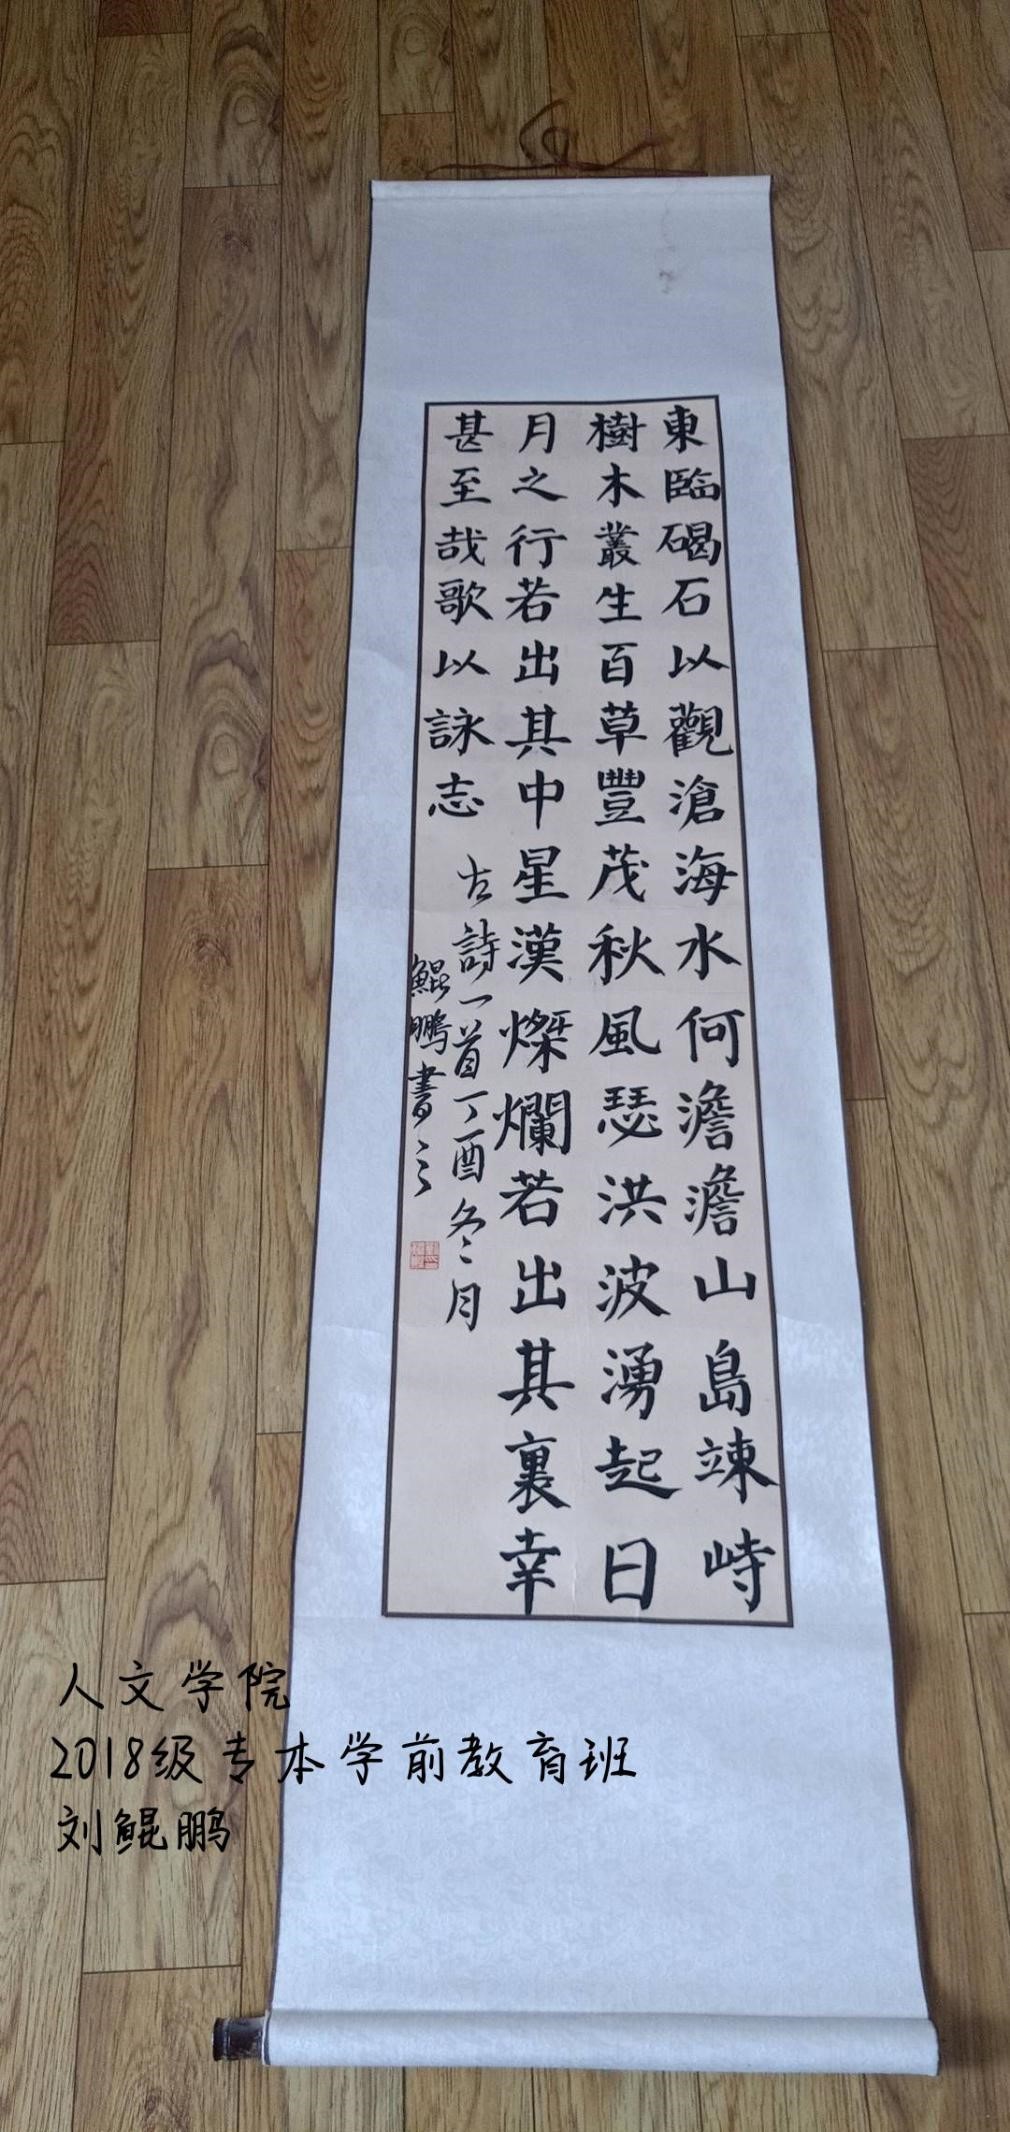 東臨碣石以觀滄海水何澹澹山島竦峙
樹木叢生百草豐茂秋風瑟洪波湧起日
月之行若出其中星漢燦爛若出其裏幸
甚至哉歌以詠志
古詩一首丁酉冬月
鯤鵬書之
人文学院
2018级专本学前教育班
刘鲲鹏